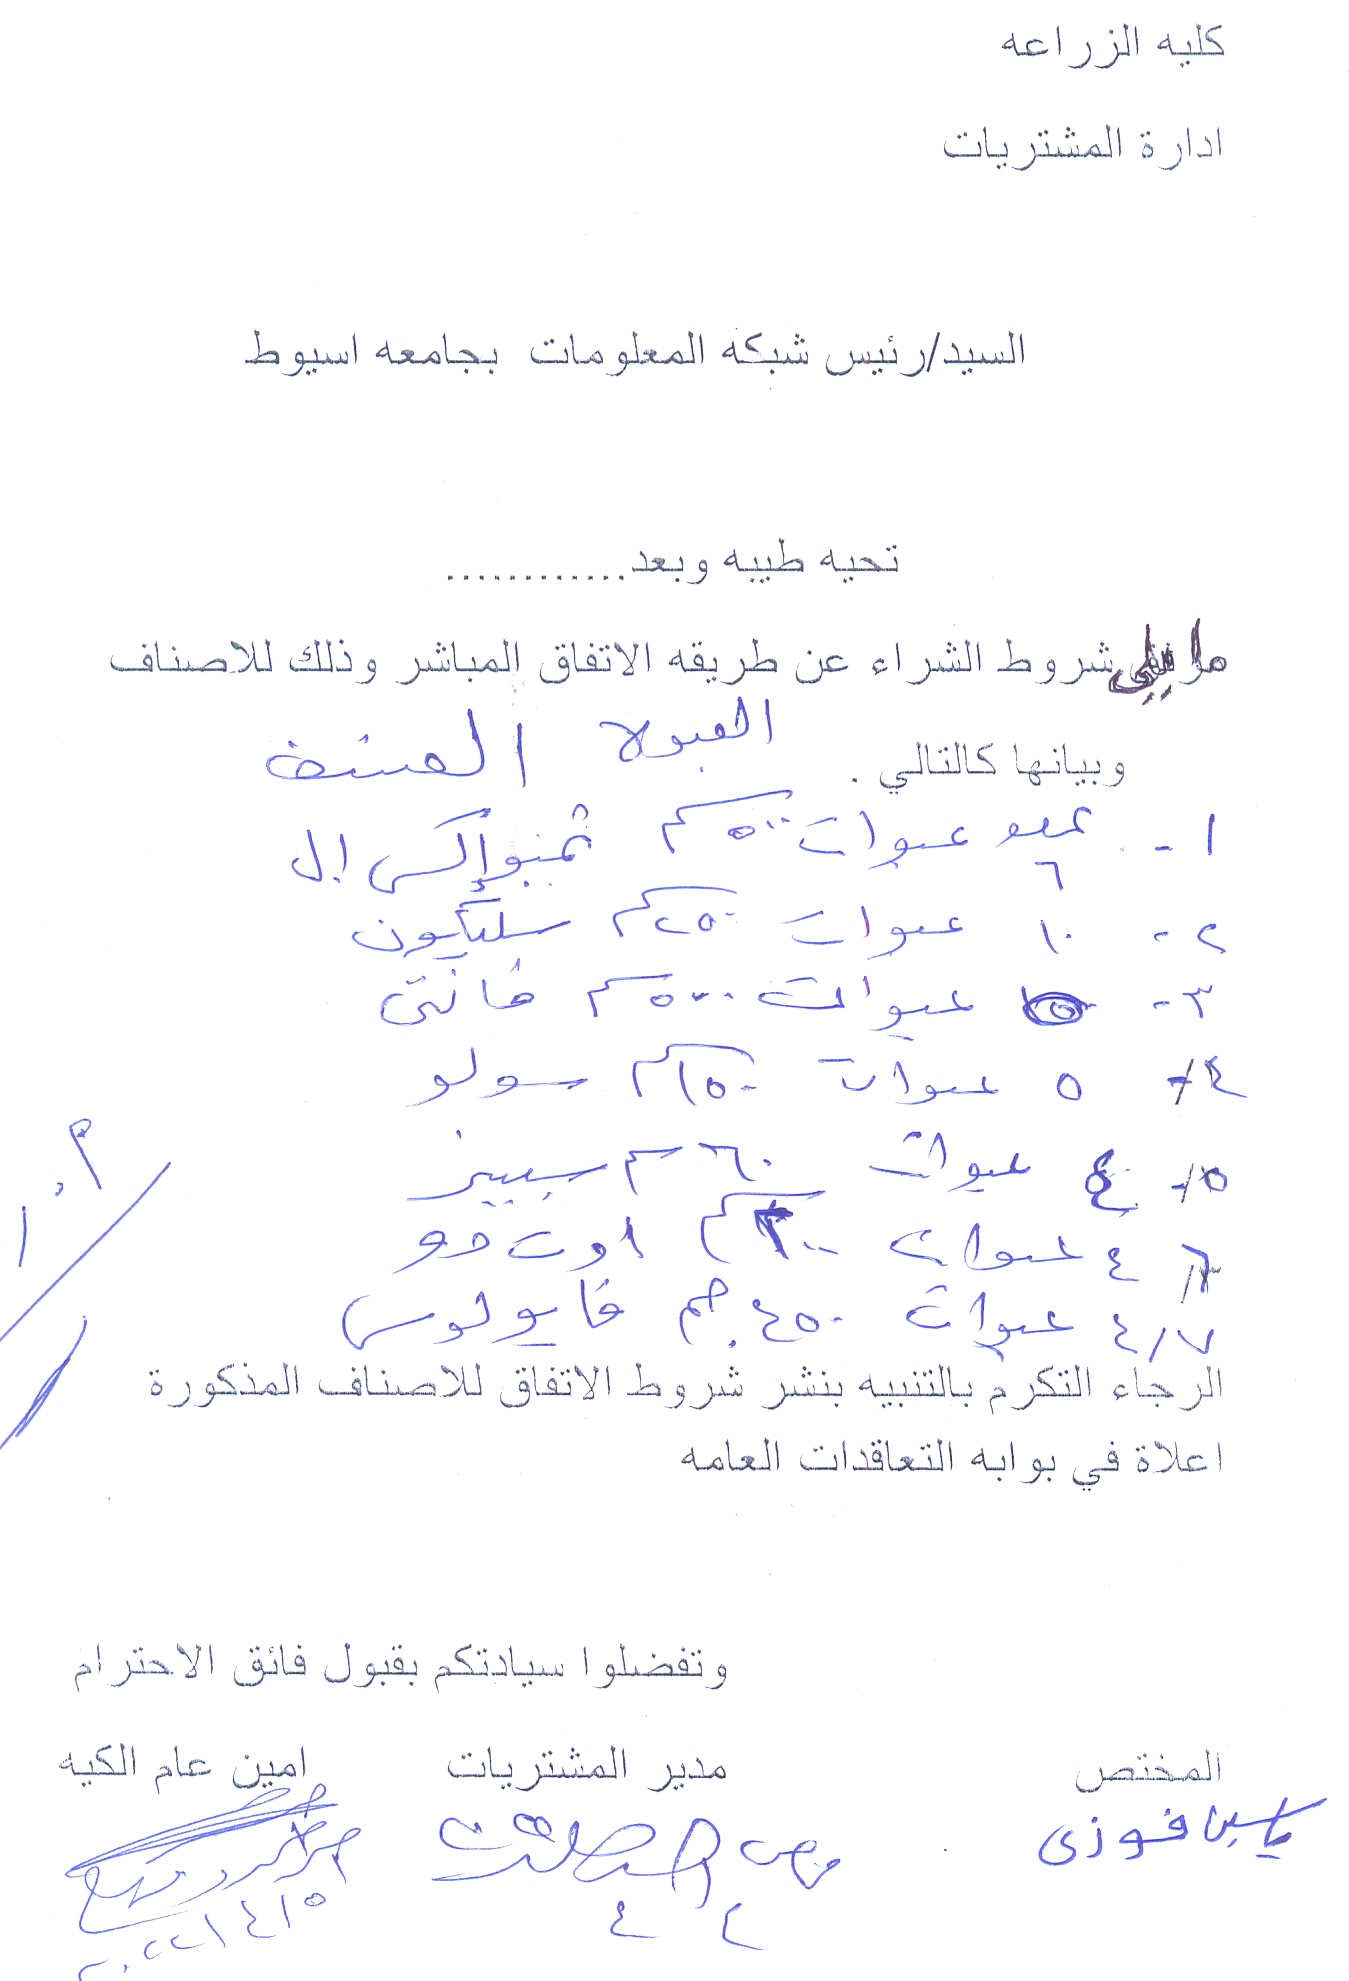 كليه الزراعه
ادارة المشتريات
السيد/رئيس شبكه المعلومات بجامعه اسيوط
تحيه طيبه وبعد............
شروط الشراء عن طريقه الاتفاق المباشر وذلك للاصناف
وبيانها كالتالي . العبوة الصنف
١- عدد ٦ عبوات ٥٠٠سم
٢- ١٠ عبوات ٢٥٠سم سليكون
٣- عبوات ٥٠٠سم
٤- ٥ عبوات ١٥٠سم سولو
٥- ٤ عبوات ٦٠سم
٦- ٤ عبوات ٢٠٠سم
٧/ ٤ عبوات ٤٥٠جم
الرجاء التكرم بالتنبيه بنشر شروط الاتفاق للاصناف المذكورة
اعلاة في بوابه التعاقدات العامه
وتفضلوا سيادتكم بقبول فائق الاحترام
المختص مدير المشتريات امين عام الكيه
ياسين فوزى